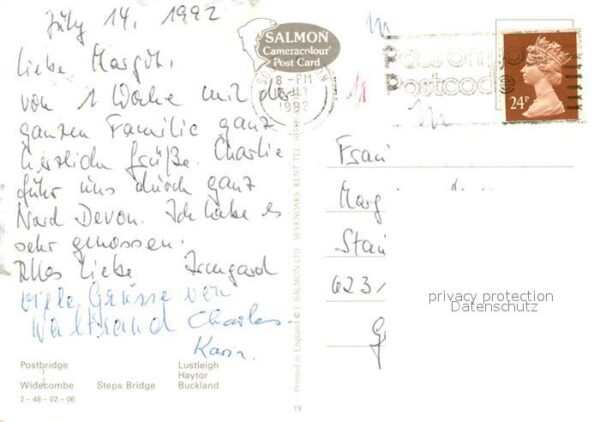 July 14. 1992
Liebe Margot,
von 1 Woche mit der
ganzen Familie ganz
herzliche Grüße. Charlie
fuhr uns durch ganz
Nord Devon. Ich habe es
sehr genossen.
Alles Liebe Irmgard
viele Grüsse von
Waltraud Charles.
Karin.
Postbridge
Widecombe
Steps Bridge
Lustleigh
Haytor
Buckland
2-48-02-06
SALMON
Cameracolour
Post Card
8-PM
1992
Pass on your
Postcode
24P
Printed in England © J. SALMON LTD. SEVENOAKS KENT TEL.
19
Frau
Marg
Stau
623
G
privacy protection
Datenschutz